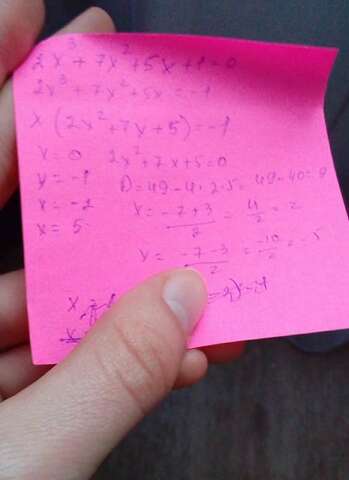 2x³ + 7x² + 5x + 1 = 0
2x³ + 7x² + 5x = -1
x (2x² + 7x + 5) = -1
x = 0 2x² + 7x + 5 = 0
x = -1 D = 49 - 4 · 2 · 5 = 49 - 40 = 9
x = -2 x = -7 + 3 / 2 = 4 / 2 = 2
x = 5 x = -7 - 3 / 2 = -10 / 2 = -5